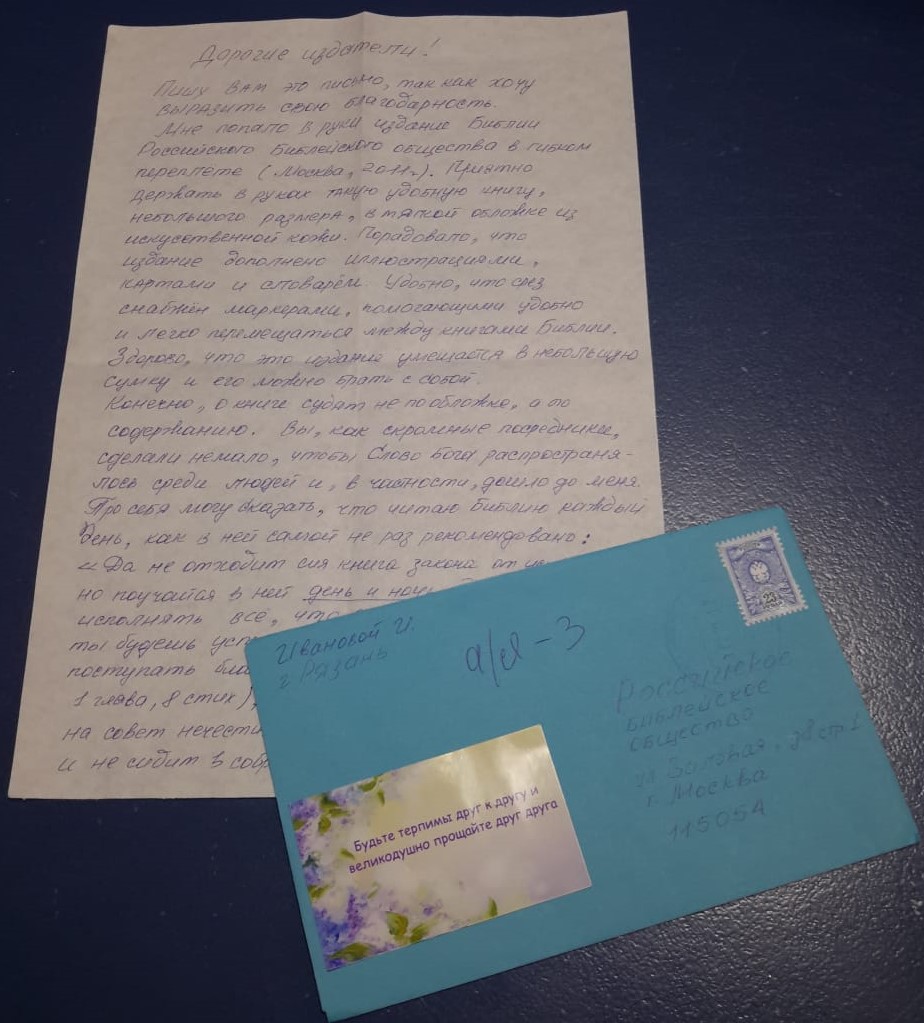 Дорогие издатели!
Пишу вам это письмо, так как хочу
выразить свою благодарность.
Мне попало в руки издание Библии
Российского Библейского общества в гибком
переплете (Москва, 2011г.). Приятно
держать в руках такую удобную книгу,
небольшого размера, в мягкой обложке из
искусственной кожи. Порадовало, что
издание дополнено иллюстрациями,
картами и словарём. Удобно, что срез
снабжён маркерами, помогающими удобно
и легко перемещаться между книгами Библии.
Здорово, что это издание умещается в небольшую
сумку и его можно брать с собой.
Конечно, о книге судят не по обложке, а по
содержанию. Вы, как скромные посредники,
сделали немало, чтобы Слово Бога распространя-
лось среди людей и, в частности, дошло до меня.
Про себя могу сказать, что читаю Библию каждый
день, как в ней самой не раз рекомендовано:
«Да не отходит сия книга закона от
но поучайся в ней день и ночь
исполнять всё, что
ты будешь
поступать
1 глава, 8 стих),
на совет
и не сидит в
Ивановой И.
г Рязань
а/я - 3
23
Российское
Библейское
общество
г. Москва
115054
Будьте терпимы друг к другу и
великодушно прощайте друг друга